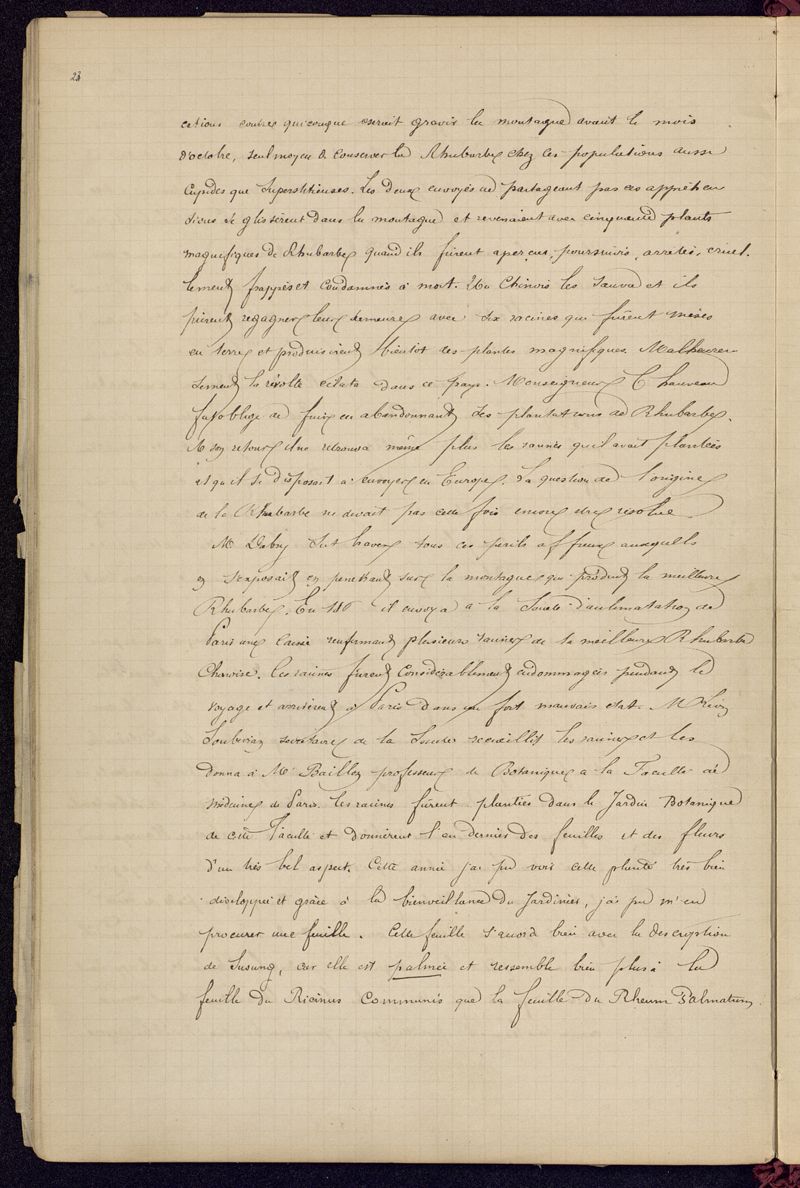 28
cations contre quiconque oserait gravir la montagne avant le mois
d'octobre, seul moyen de conserver la Rhubarbe chez ces populations aussi
cupides que superstitieuses. Les deux envoyés ne partageant pas ces appréhen
sions se glissèrent dans la montagne et revenaient avec cinquante plants
magnifiques de Rhubarbe quand ils furent aperçus, poursuivis, arretés, cruel.
lement frappés et condamnés à mort. Un Chinois les sauva et ils
purent regagner leur demeure avec dix racines qui furent mises
en terre et produisirent bientot des plantes magnifiques. Malheureu
sement la révolte eclata dans ce pays. Monseigneur Chauveau
fut obligé de fuir en abandonnant ses plantations de Rhubarbe.
A son retour il ne retrouva même plus les racines qu'il avait plantées
et qu'il se disposait a envoyer en Europe. La question de l'origine
de la Rhubarbe ne devait pas cette fois encore etre résolue
Mr Dabry sut braver tous ces perils affreux auxquels
on s'exposait en penetrant sur la montagne qui produit la meilleure
Rhubarbe. En 186 il envoya a la Société d'acclimatation de
Paris une caisse renfermant plusieurs racines de la meilleure Rhubarbe
Chinoise. Ces racines furent considérablement endommagées pendant le
voyage et arrivèrent à Paris dans un fort mauvais etat. Mr Léon
Soubeiran secretaire de la Société recueillit les racines et les
donna à Mr Baillon professeur de Botanique a la Faculté de
médecine de Paris. Les racines furent plantées dans le Jardin Botanique
de cette Faculté et donnèrent l'an dernier des feuilles et des fleurs
d'un très bel aspect. Cette année j'ai pu voir cette plante très bien
développée et grâce à la bienveillance du Jardinier, j'ai pu m'en
procurer une feuille. Cette feuille s'accorde bien avec la description
de car elle est palmée et ressemble bien plus à la
feuille du Ricinus Communis que la feuille du Rheum Palmatum.